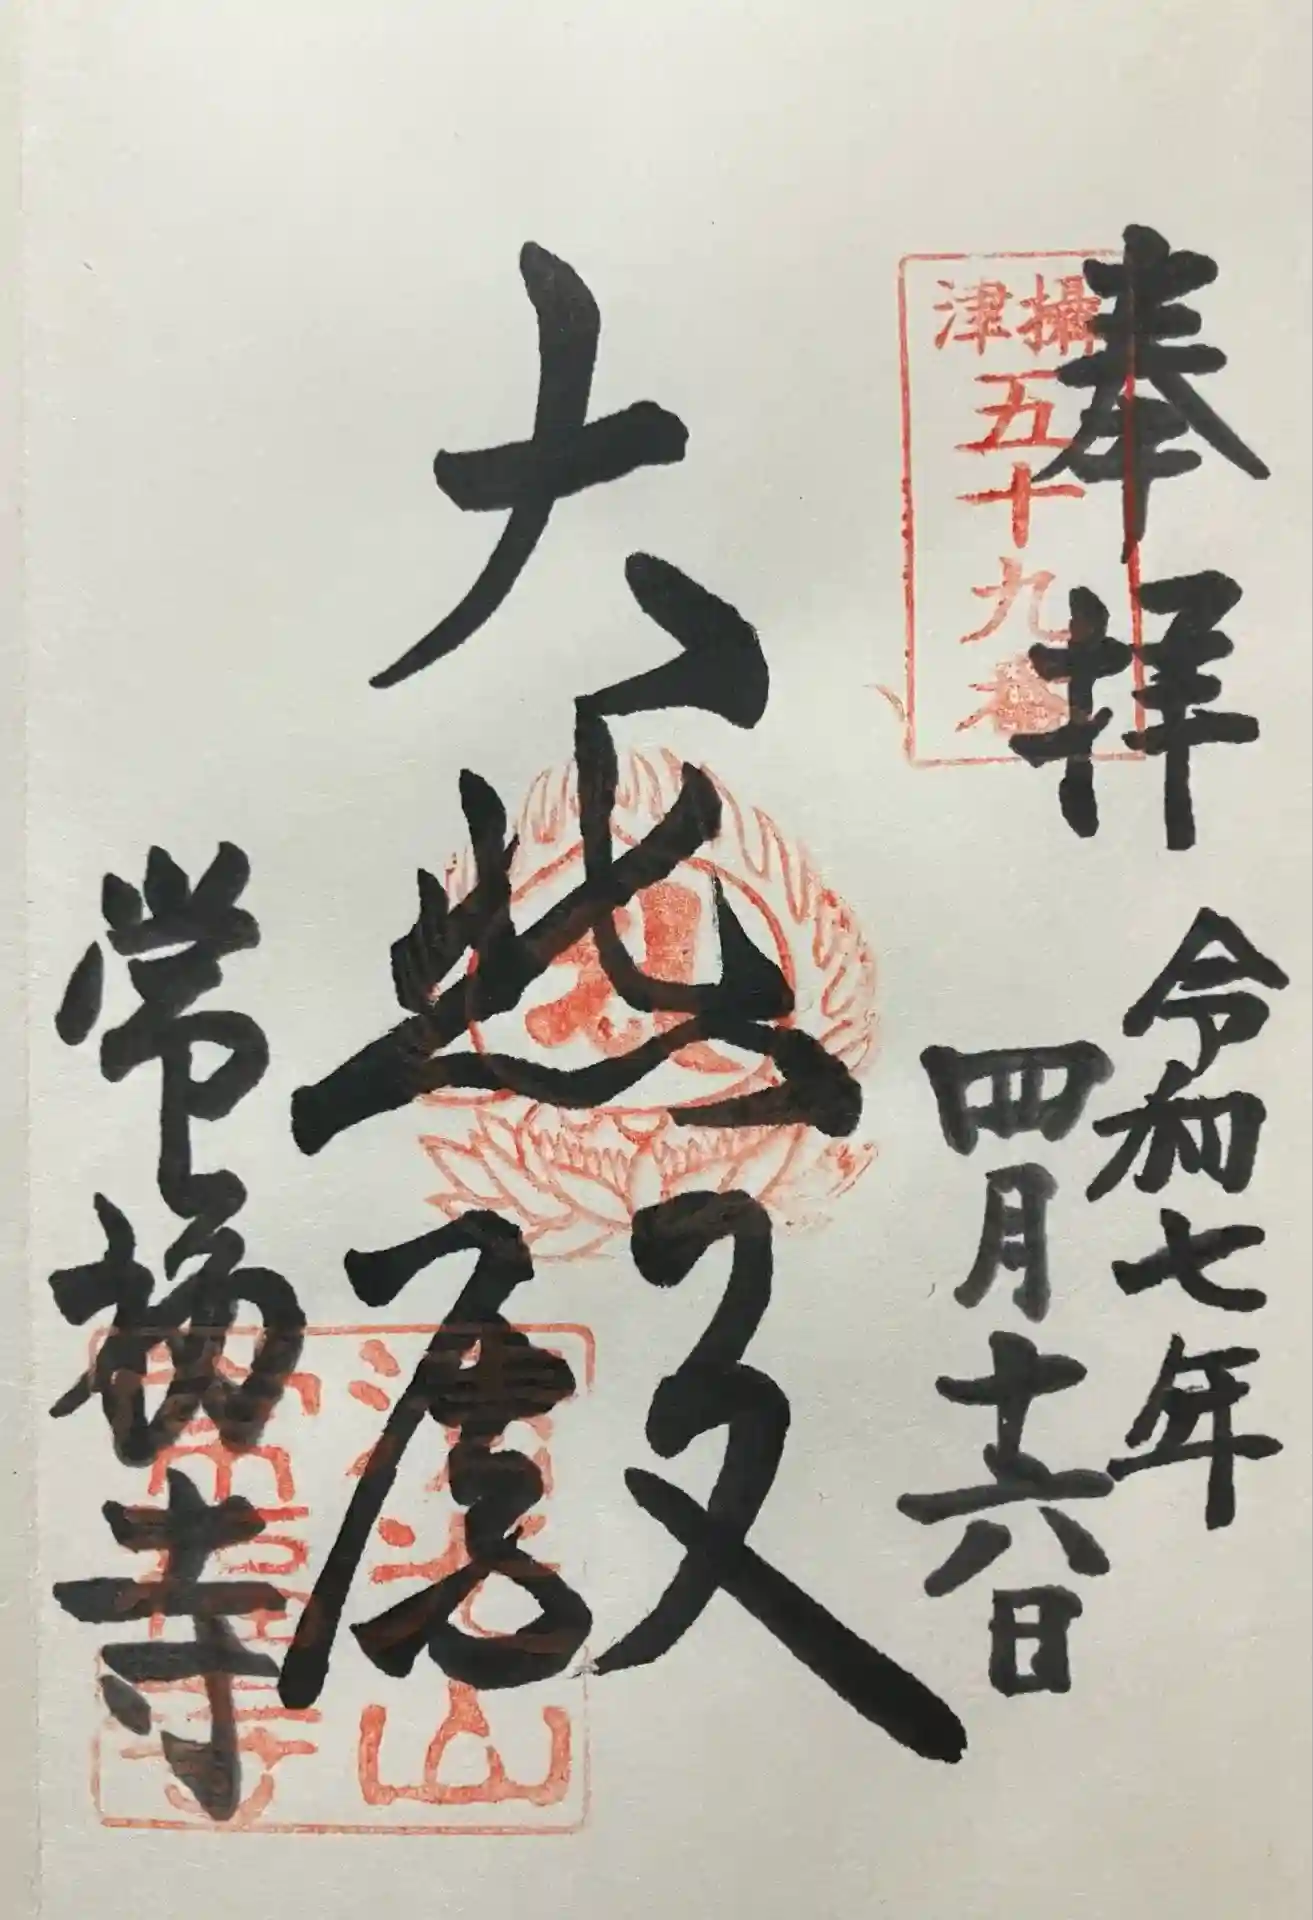 奉拝
攝津
五十九番
令和七年
四月十六日
大悲殿
常福寺